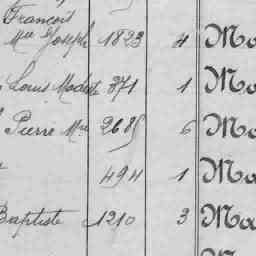 François
Mie Joseph 1823 4 Ma
Louis Modeste 871 1 Ma
Pierre Mie 2685 6 Ma
494 1 Ma
Baptiste 1210 3 Ma